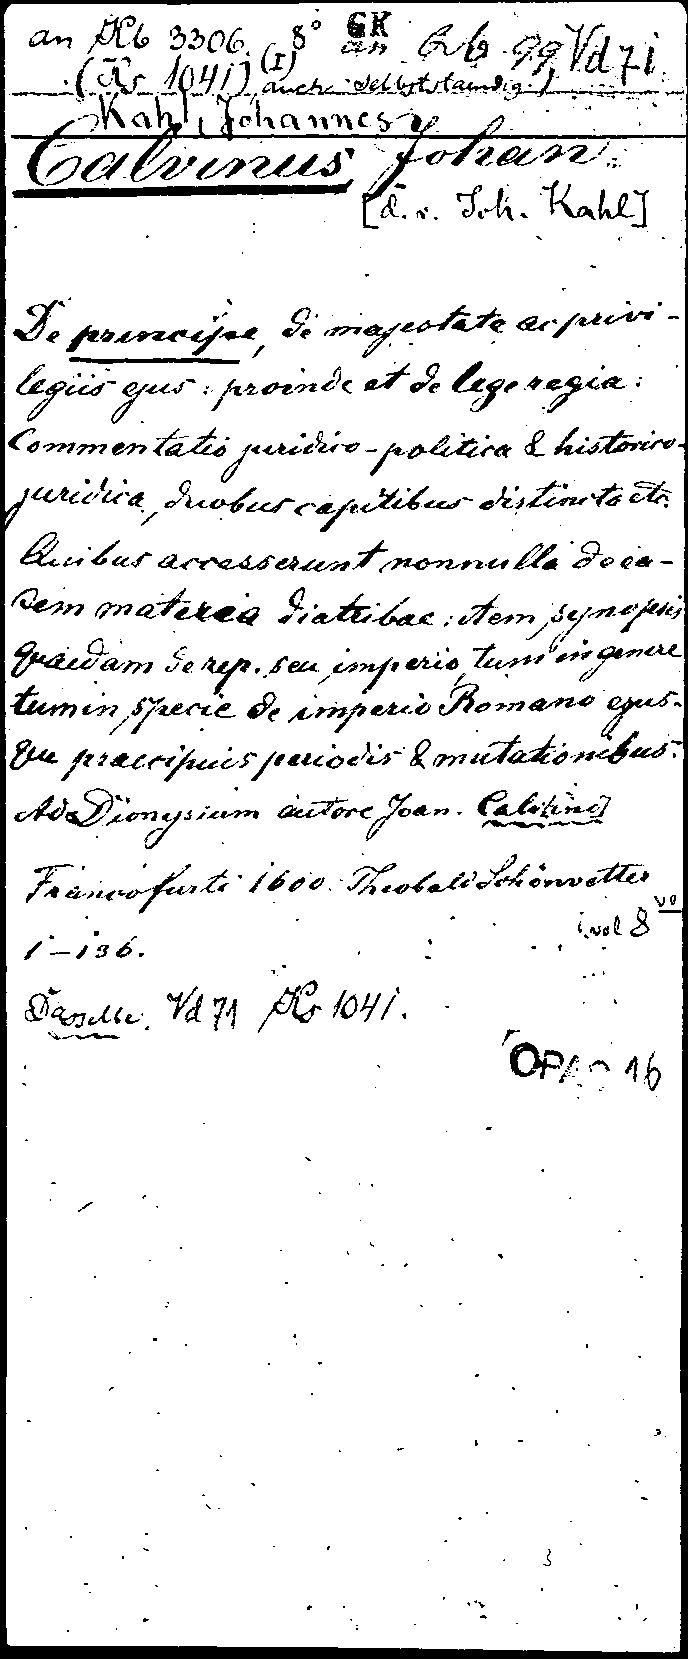 an Kb 3306. 8° GK an Bb 99 Vd 71
(Ks 1041) (I) auch selbststaendig)
Kahl, Johannes
Calvinus, Johan.
[d. i. Joh. Kahl]
De principe, de majestate ac privi-
legiis ejus: proinde et de lege regia:
Commentatio juridico-politica & historico-
juridica, duobus capitibus distincta etc.
Quibus accesserunt nonnulla de ea-
dem materia diatribae: item synopsis
quaedam de rep. seu imperio, tum in genere
tum in specie de imperio Romano ejus-
que praecipuis periodis & mutationibus.
Ad Dionysium autore Joan. Calvino]
Francofurti 1600. Theobald Schönvetter
1 vol 8vo
1-136.
Dasselbe. Vd 71 Ks 1041.
OPAC 16